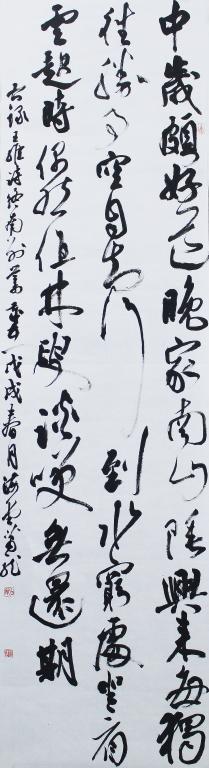 中歲頗好道晚家南山陲興來每獨
往勝事空自知行到水窮處坐看
雲起時偶然值林叟談咲無還期
右錄王維詩終南別業 戊戌春月海